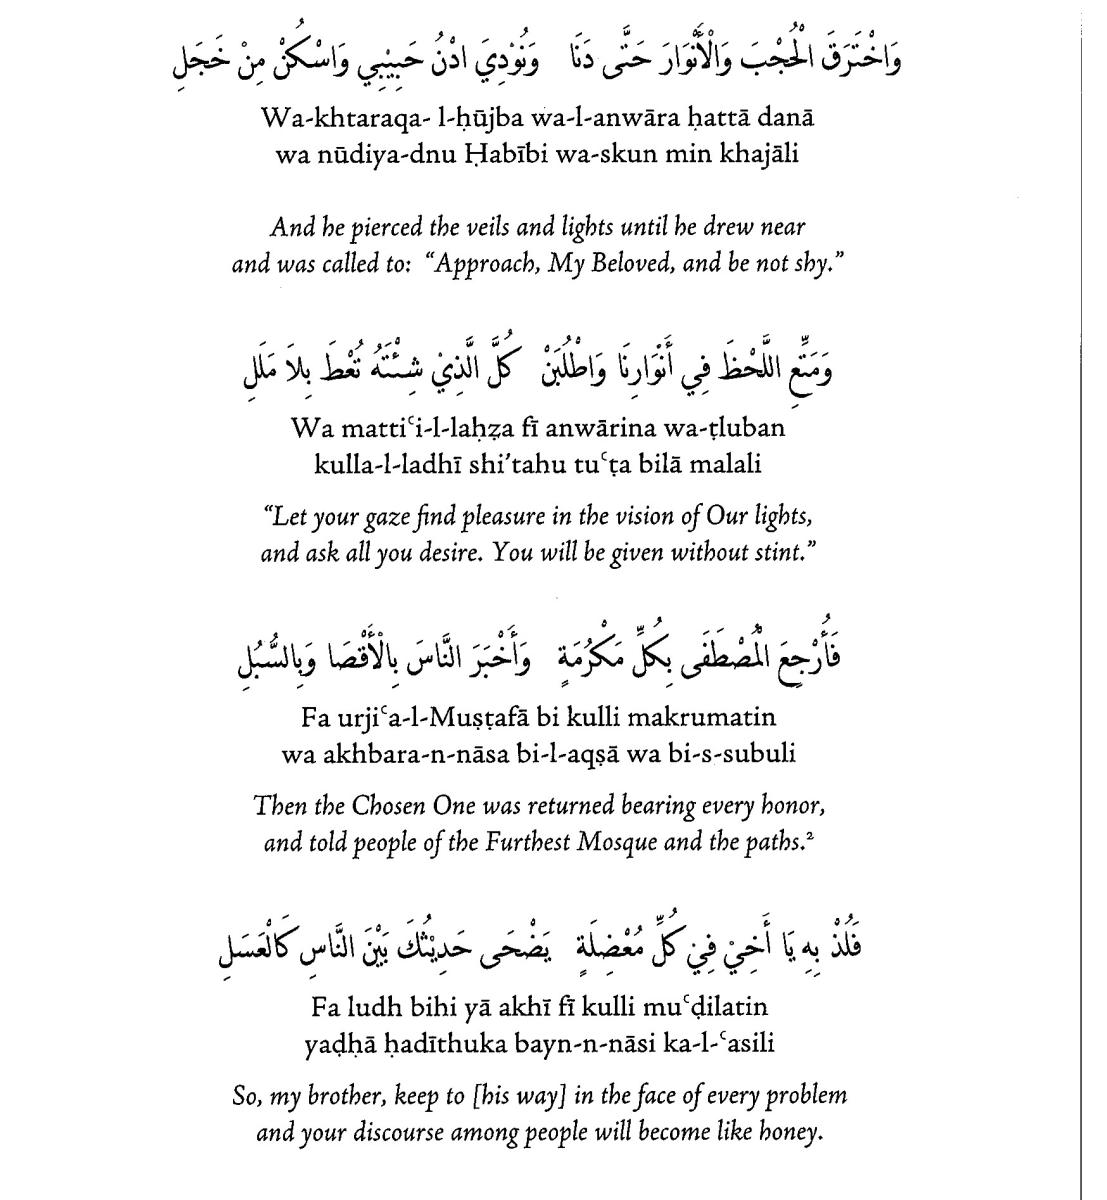 وَاخْتَرَقَ الْحُجْبَ وَالْأَنْوَارَ حَتَّى دَنَا وَنُوْدِيَ ادْنُ حَبِيْبِي وَاسْكُنْ مِنْ خَجَلِ
Wa-khtaraqa- l-ḥūjba wa-l-anwāra ḥattā danā
wa nūdiya-dnu Ḥabībi wa-skun min khajāli
And he pierced the veils and lights until he drew near
and was called to: “Approach, My Beloved, and be not shy.”
وَمَتِّعِ اللَّحْظَ فِي أَنْوَارِنَا وَاطْلُبَنْ كُلَّ الَّذِيْ شِئْتَهُ تُعْطَ بِلاَ مَلَلِ
Wa mattiʿi-l-laḥẓa fī anwārina wa-ṭluban
kulla-l-ladhī shi’tahu tuʿṭa bilā malali
“Let your gaze find pleasure in the vision of Our lights,
and ask all you desire. You will be given without stint.”
فَأُرْجِعَ الْمُصْطَفَى بِكُلِّ مَكْرُمَةٍ وَأَخْبَرَ النَّاسَ بِالْأَقْصَا وَبِالسُّبُلِ
Fa urjiʿa-l-Muṣṭafā bi kulli makrumatin
wa akhbara-n-nāsa bi-l-aqṣā wa bi-s-subuli
Then the Chosen One was returned bearing every honor,
and told people of the Furthest Mosque and the paths.²
فَلُذْ بِهِ يَا أَخِيْ فِيْ كُلِّ مُعْضِلَةٍ يَضْحَى حَدِيْثُكَ بَيْنَ النَّاسِ كَالْعَسَلِ
Fa ludh bihi yā akhī fī kulli muʿḍilatin
yaḍḥā ḥadīthuka bayn-n-nāsi ka-l-ʿasili
So, my brother, keep to [his way] in the face of every problem
and your discourse among people will become like honey.